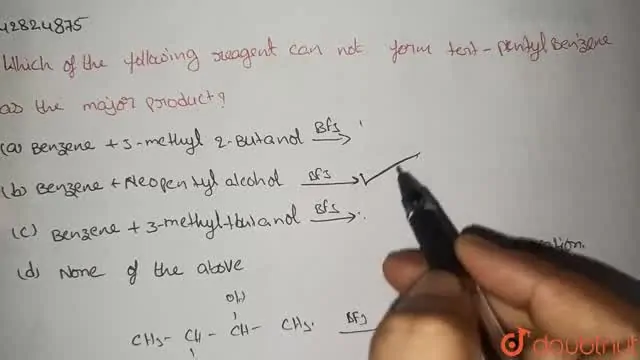 42824875
Which of the following reagent can not form tert-pentylBenzene
as the major product?
(a) Benzene + 3-methyl 2-Butanol BF3
(b) Benzene + Neopentyl alcohol BF3
(c) Benzene + 3-methyl-1-butanol BF3
(d) None of the above
OH
CH3- CH- CH- CH3. BF3
doubtnut